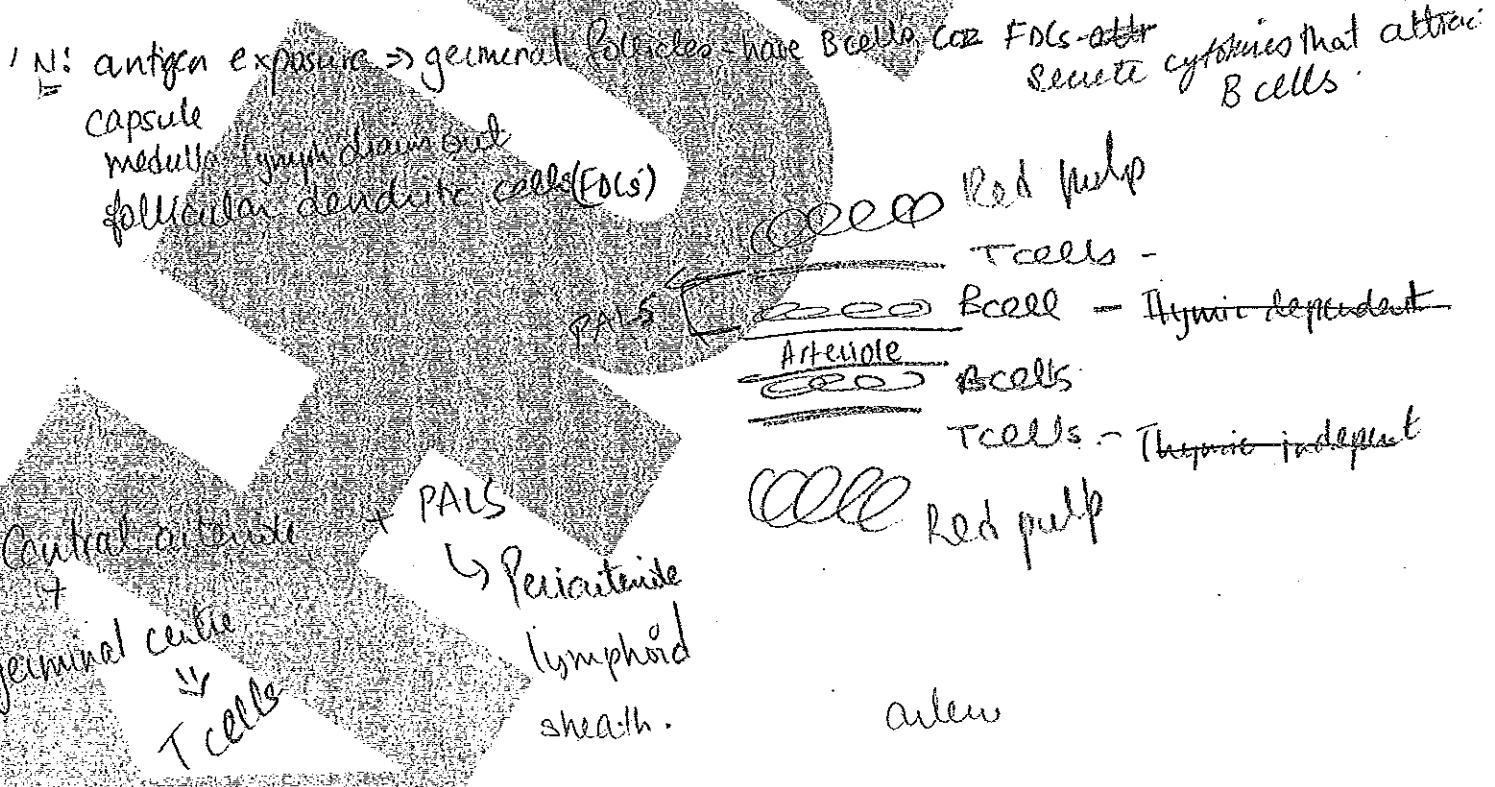 LN: antigen exposure => germinal follicles - have B cells, coz FDCs - attr
secrete cytokines that attract
B cells.
capsule
medulla - lymph drains out
follicular dendritic cells (FDCs)
Red pulp
T cells -
PALS
B cell - Thymic dependent
Arteriole
B cells
T cells. - Thymic indepent
Red pulp
Central arteriole + PALS
↳ Periarteriole
lymphoid
sheath.
+
germinal centre
T cells